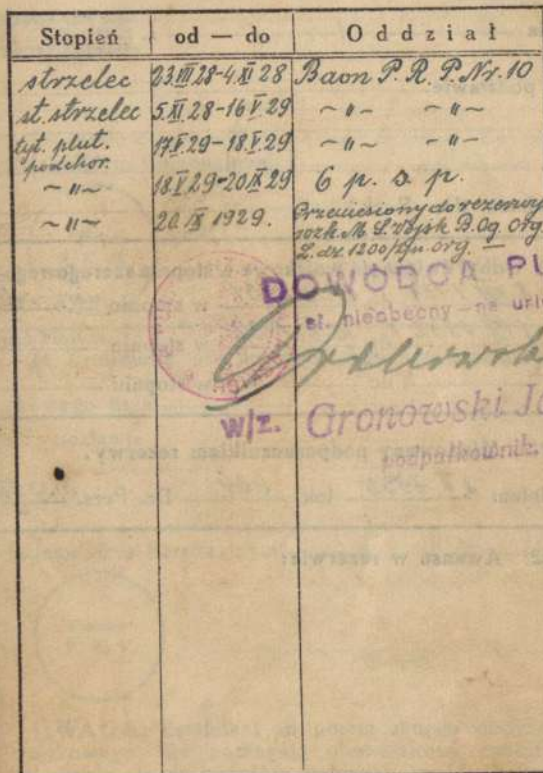 Stopień od — do Oddział
strzelec 23.VIII 28-4.XI 28 Baon P. R. P. Nr. 10
st. strzelec 5.XI 28-16.V.29 ~"~ ~"~
tyt. plut. podchor. 17.V.29-18.V.29 ~"~ ~"~
~"~ 18.V.29-20.IX.29 6 p. s. p.
~"~ 20.IX 1929. Przeniesiony do rezerwy
rozk. M. S. Wojsk. B. Og. Org.
L. dz. 1200/ Org. —
DOWÓDCA PU
nieobecny — na url
w/z. Gronowski
podpułkownik.
podporucznikiem rezerwy.
Awanse w rezerwie: